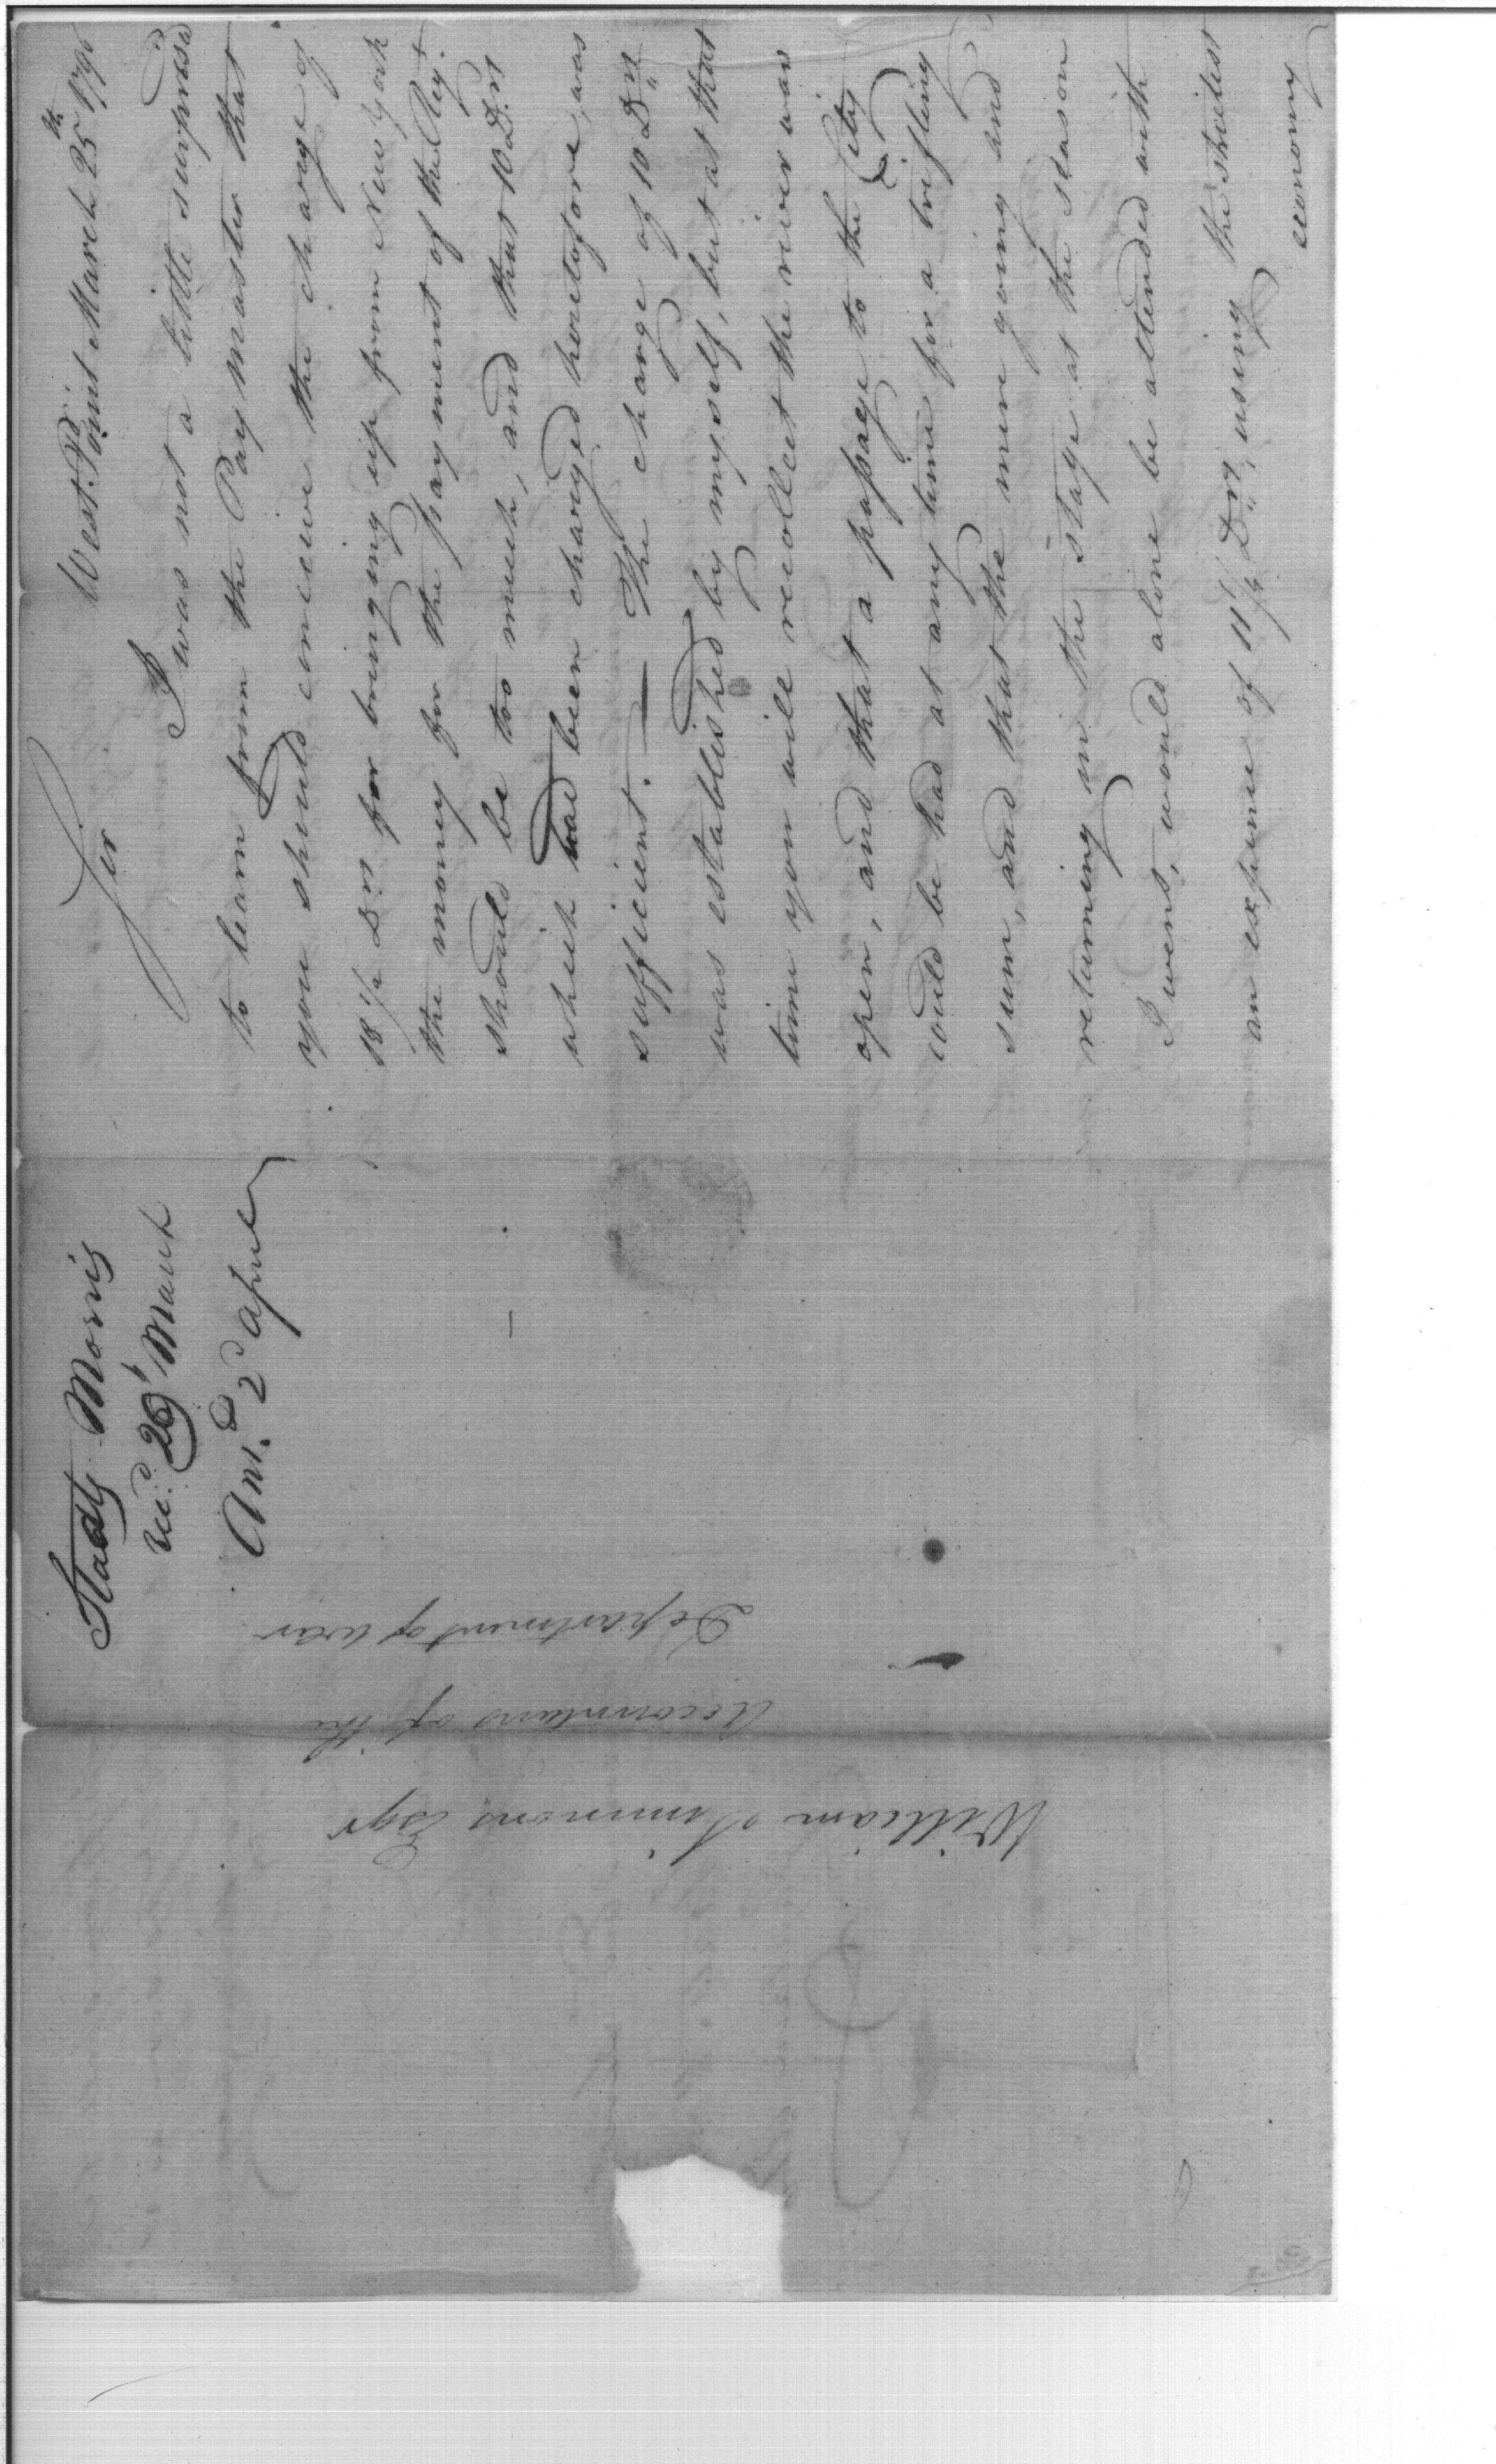 West Point March 25th 1796
Sir
I was not a little surprised
to learn from the Pay Master that
you should conceive the charge of
18 1/2 Drs for bringing up from New York
the money for the payment of the Regt
should be too much, and that 10 Drs
which had been charged heretofore, was
sufficient. — The charge of 10 Drs
was established by myself, but at that
time you will recollect the river was
open, and that a passage to the City
could be had at any time for a trifling
sum, and that the mere going and
returning in the stage at the season
I went, would alone be attended with
an expense of 11 1/4 Drs, using the strictest
economy
Staats Morris
recd. 29 March
Ansd. 2d April
William Simmons Esqr
Accountant of the
Department of War